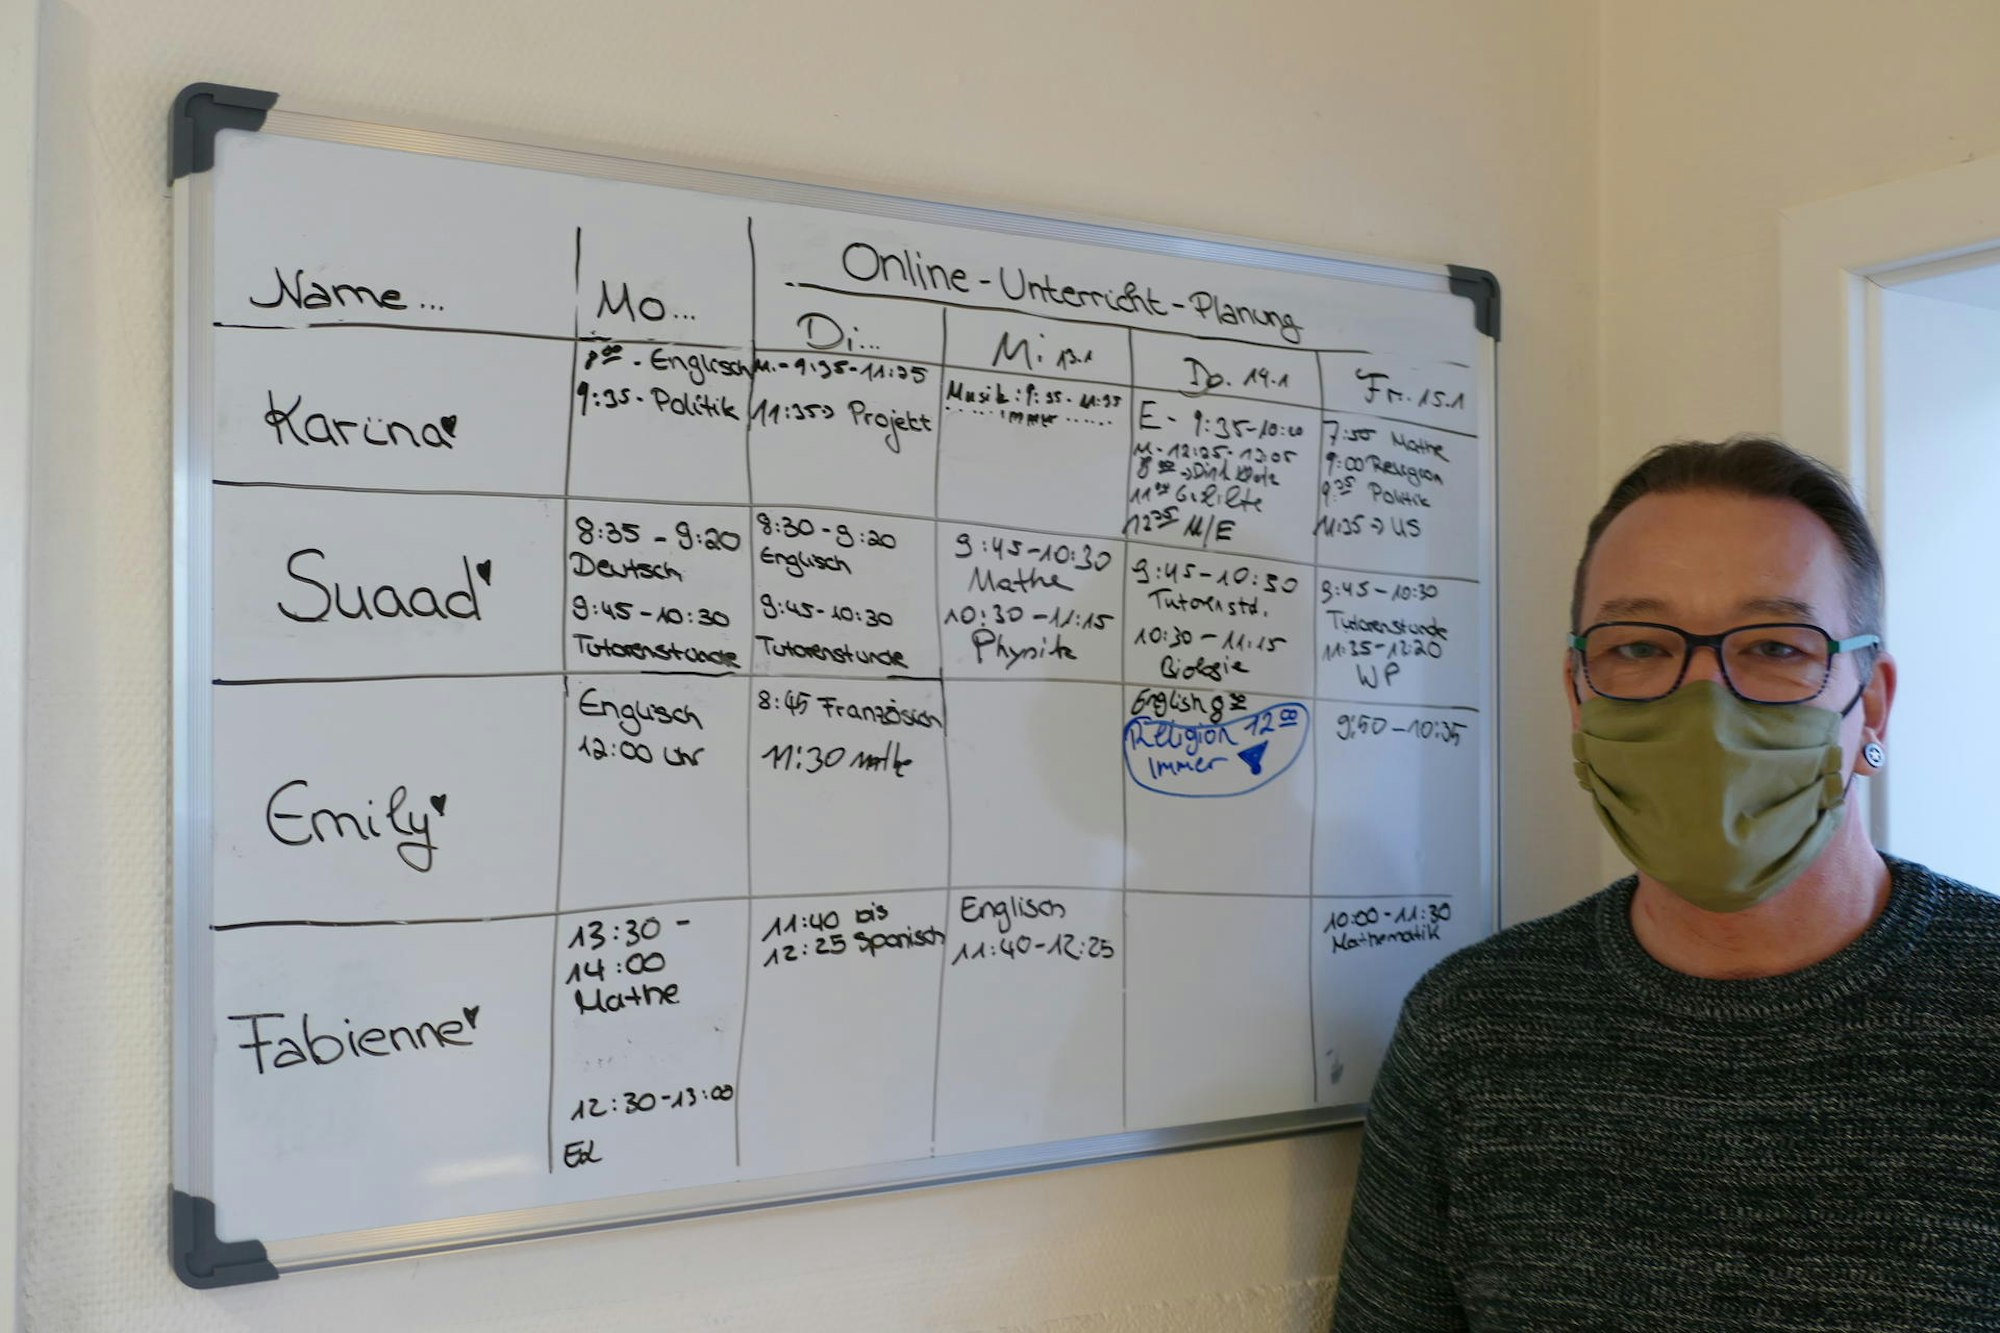 Online-Unterricht-Planung
Name...
Mo...
Di...
Mi. 13.1
Do. 14.1
Fr. 15.1
Karina
8⁰⁰ - Englisch
9:35 - Politik
M. - 9:35-11:25
11:35 → Projekt
Musik: 9:35-11:35
..... immer ......
E - 9:35-10:20
M - 12:25-13:05
12³⁵ M/E
7:55 Mathe
9:00 Religion
9³⁵ Politik
11:35 → US
Suaad
8:35 - 9:20
Deutsch
9:45-10:30
Tutorenstunde
8:30-9:20
Englisch
9:45-10:30
Tutorenstunde
9:45-10:30
Mathe
10:30-11:15
Physik
9:45-10:30
Tutorenstd.
10:30-11:15
Biologie
9:45-10:30
Tutorenstunde
11:35-12:20
WP
Emily
Englisch
12:00 Uhr
8:45 Französisch
11:30 mathe
English 8³⁰
Religion 12⁰⁰
immer
9:50-10:35
Fabienne
13:30 -
14:00
Mathe
12:30-13:00
11:40 bis
12:25 Spanisch
Englisch
11:40-12:25
10:00-11:30
Mathematik